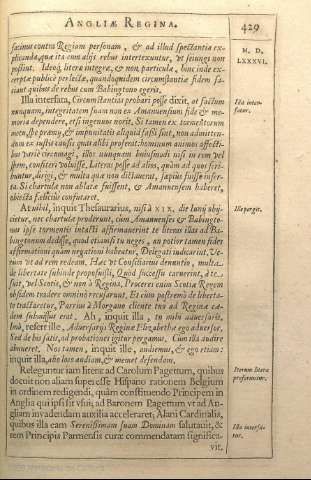 ANGLIÆ REGINA.
429
M. D.
LXXXVI.
facinus contra Regiam personam, & ad illud spectantia ex-
plicanda, quæ ita cum aliis rebus intertexuntur, ut seiungi non
possint. Ideoq, literæ integræ, & non particulæ, hinc inde ex-
cerptæ publicè perlectæ, quandoquidem circumstantiæ fidem fa-
ciant quibus de rebus cum Babingtono egerit.
Illa interfata, Circumstantias probari posse dixit, at factum
nunquam, integritatem suam non ex Amanuensium fide & me-
moria dependere, etsi ingenuos norit. Si tamen ex tormentorum
metu, spe præmij, & impunitatis aliquid fassi sint, non admitten-
dum ex iustis causis quas alibi proferat: hominum animos affecti-
bus variè circumagi, illos nunquam huiusmodi nisi in rem vel
spem, confiteri voluisse. Literas posse ad alios, quàm ad quos scri-
buntur, dirigi, & multa quæ non dictauerat, sæpius fuisse inser-
ta. Si chartulæ non ablatæ fuissent, & Amanuensem haberet,
obiecta faciliùs confutaret.
At nihil, inquit Thesaurarius, nisi à XIX. die Iunij obij-
cietur, nec chartulæ proderunt, cùm Amanuenses & Babingto-
nus ipse tormentis intacti affirmauerint te literas illas ad Ba-
bingtonum dedisse, quod etiamsi tu neges, an potior tamen fides
affirmationi quàm negationi habeatur, Delegati iudicarint. Ve-
rùm vt ad rem redeam, Hæc vt Consiliarius denuntio, multa
de libertate subinde proposuisti, Quòd successu caruerint, à te
fuit, vel Scotis, & non à Regina. Proceres enim Scotiæ Regem
obsidem tradere omninò recusarunt. Et cùm postremò de liberta-
te tractaretur, Parrius à Morgano cliente tuo ad Reginæ cæ-
dem subauissus erat. Ah, inquit illa, tu mihi aduersaris.
Imò, refert ille, Aduersarijs Reginæ Elizabethæ ego aduersor.
Sed de his satis, ad probationes igitur pergamus. Cùm illa audire
abnueret. Nos tamen, inquit ille, audiemus, & ego etiam:
inquit illa, alio loco audiam, & memet defendam.
Releguntur iam literæ ad Carolum Pagettum, quibus
docuit non aliam superesse Hispano rationem Belgium
in ordinem redigendi, quàm constituendo Principem in
Anglia qui ipsi sit vsui, ad Baronem Pagettum vt ad An-
gliam inuadendam auxilia acceleraret; Alani Cardinalis,
quibus illa eam Serenissimam suam Dominam salutauit, &
rem Principis Parmensis curæ commendatam significa-
vit.
Illa inter-
fatur.
Ille pergit.
Iterum literæ
proferuntur.
Illa interfa-
tur.